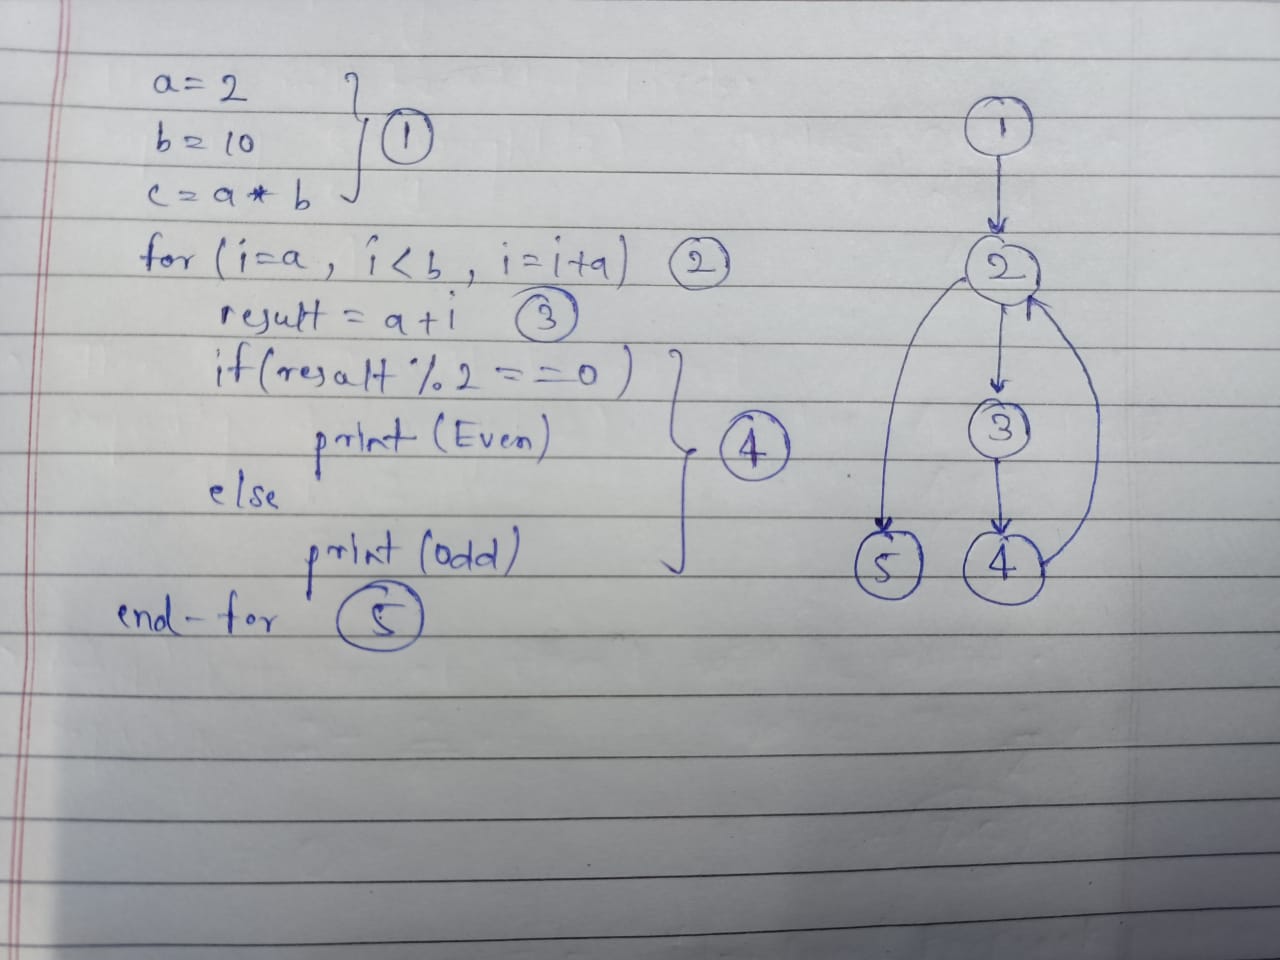 a = 2
b = 10
c = a * b
1
for (i=a, i<b, i=i+a) 2
result = a+i 3
if (resalt % 2 == 0)
print (Even)
4
else
print (odd)
end-for 5
1
2
3
5 4